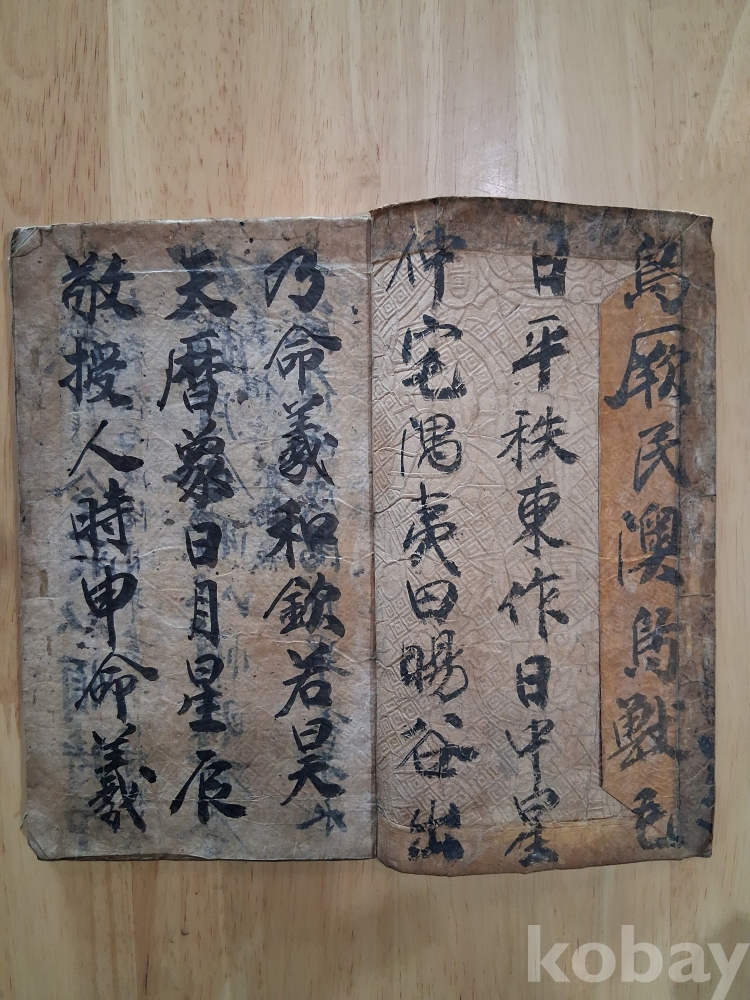 鳥厥民澳鳥獸
日平秩東作日中星
仲宅隅夷曰暘谷出
乃命羲和欽若昊
天曆象日月星辰
敬授人時申命羲
kobay